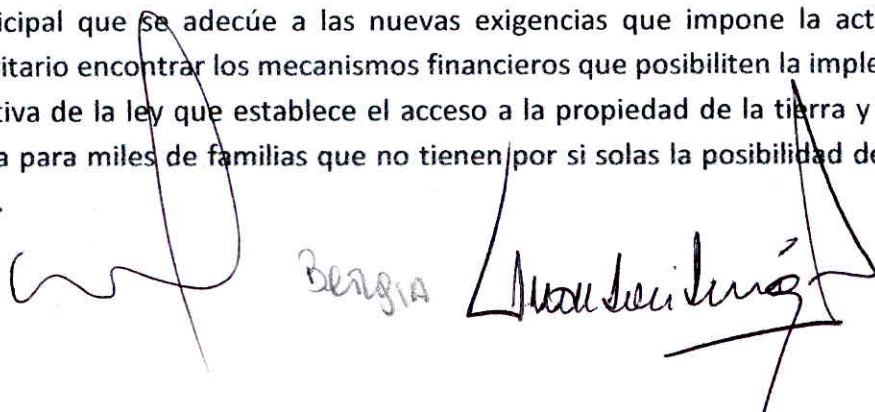 icipal que se adecúe a las nuevas exigencias que impone la act
itario encontrar los mecanismos financieros que posibiliten la imple
tiva de la ley que establece el acceso a la propiedad de la tierra y
a para miles de familias que no tienen por si solas la posibilidad de
.
Bergia